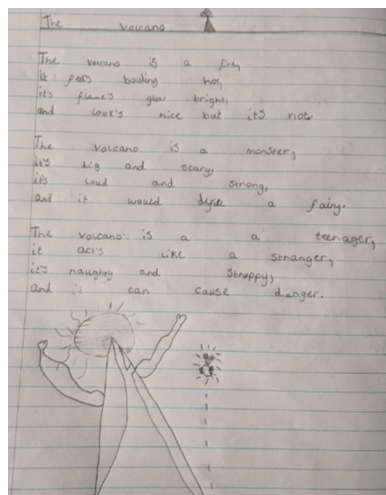 The volcano
The volcano is a fire,
it feels bouling hot,
it's flame's glow bright,
and look's nice but it's not
The volcano is a monster,
it's big and scary,
it's loud and strong,
and it would a fairy.
The volcano is a a teenager,
it act's like a stranger,
it's naughty and stroppy,
and it can cause danger.